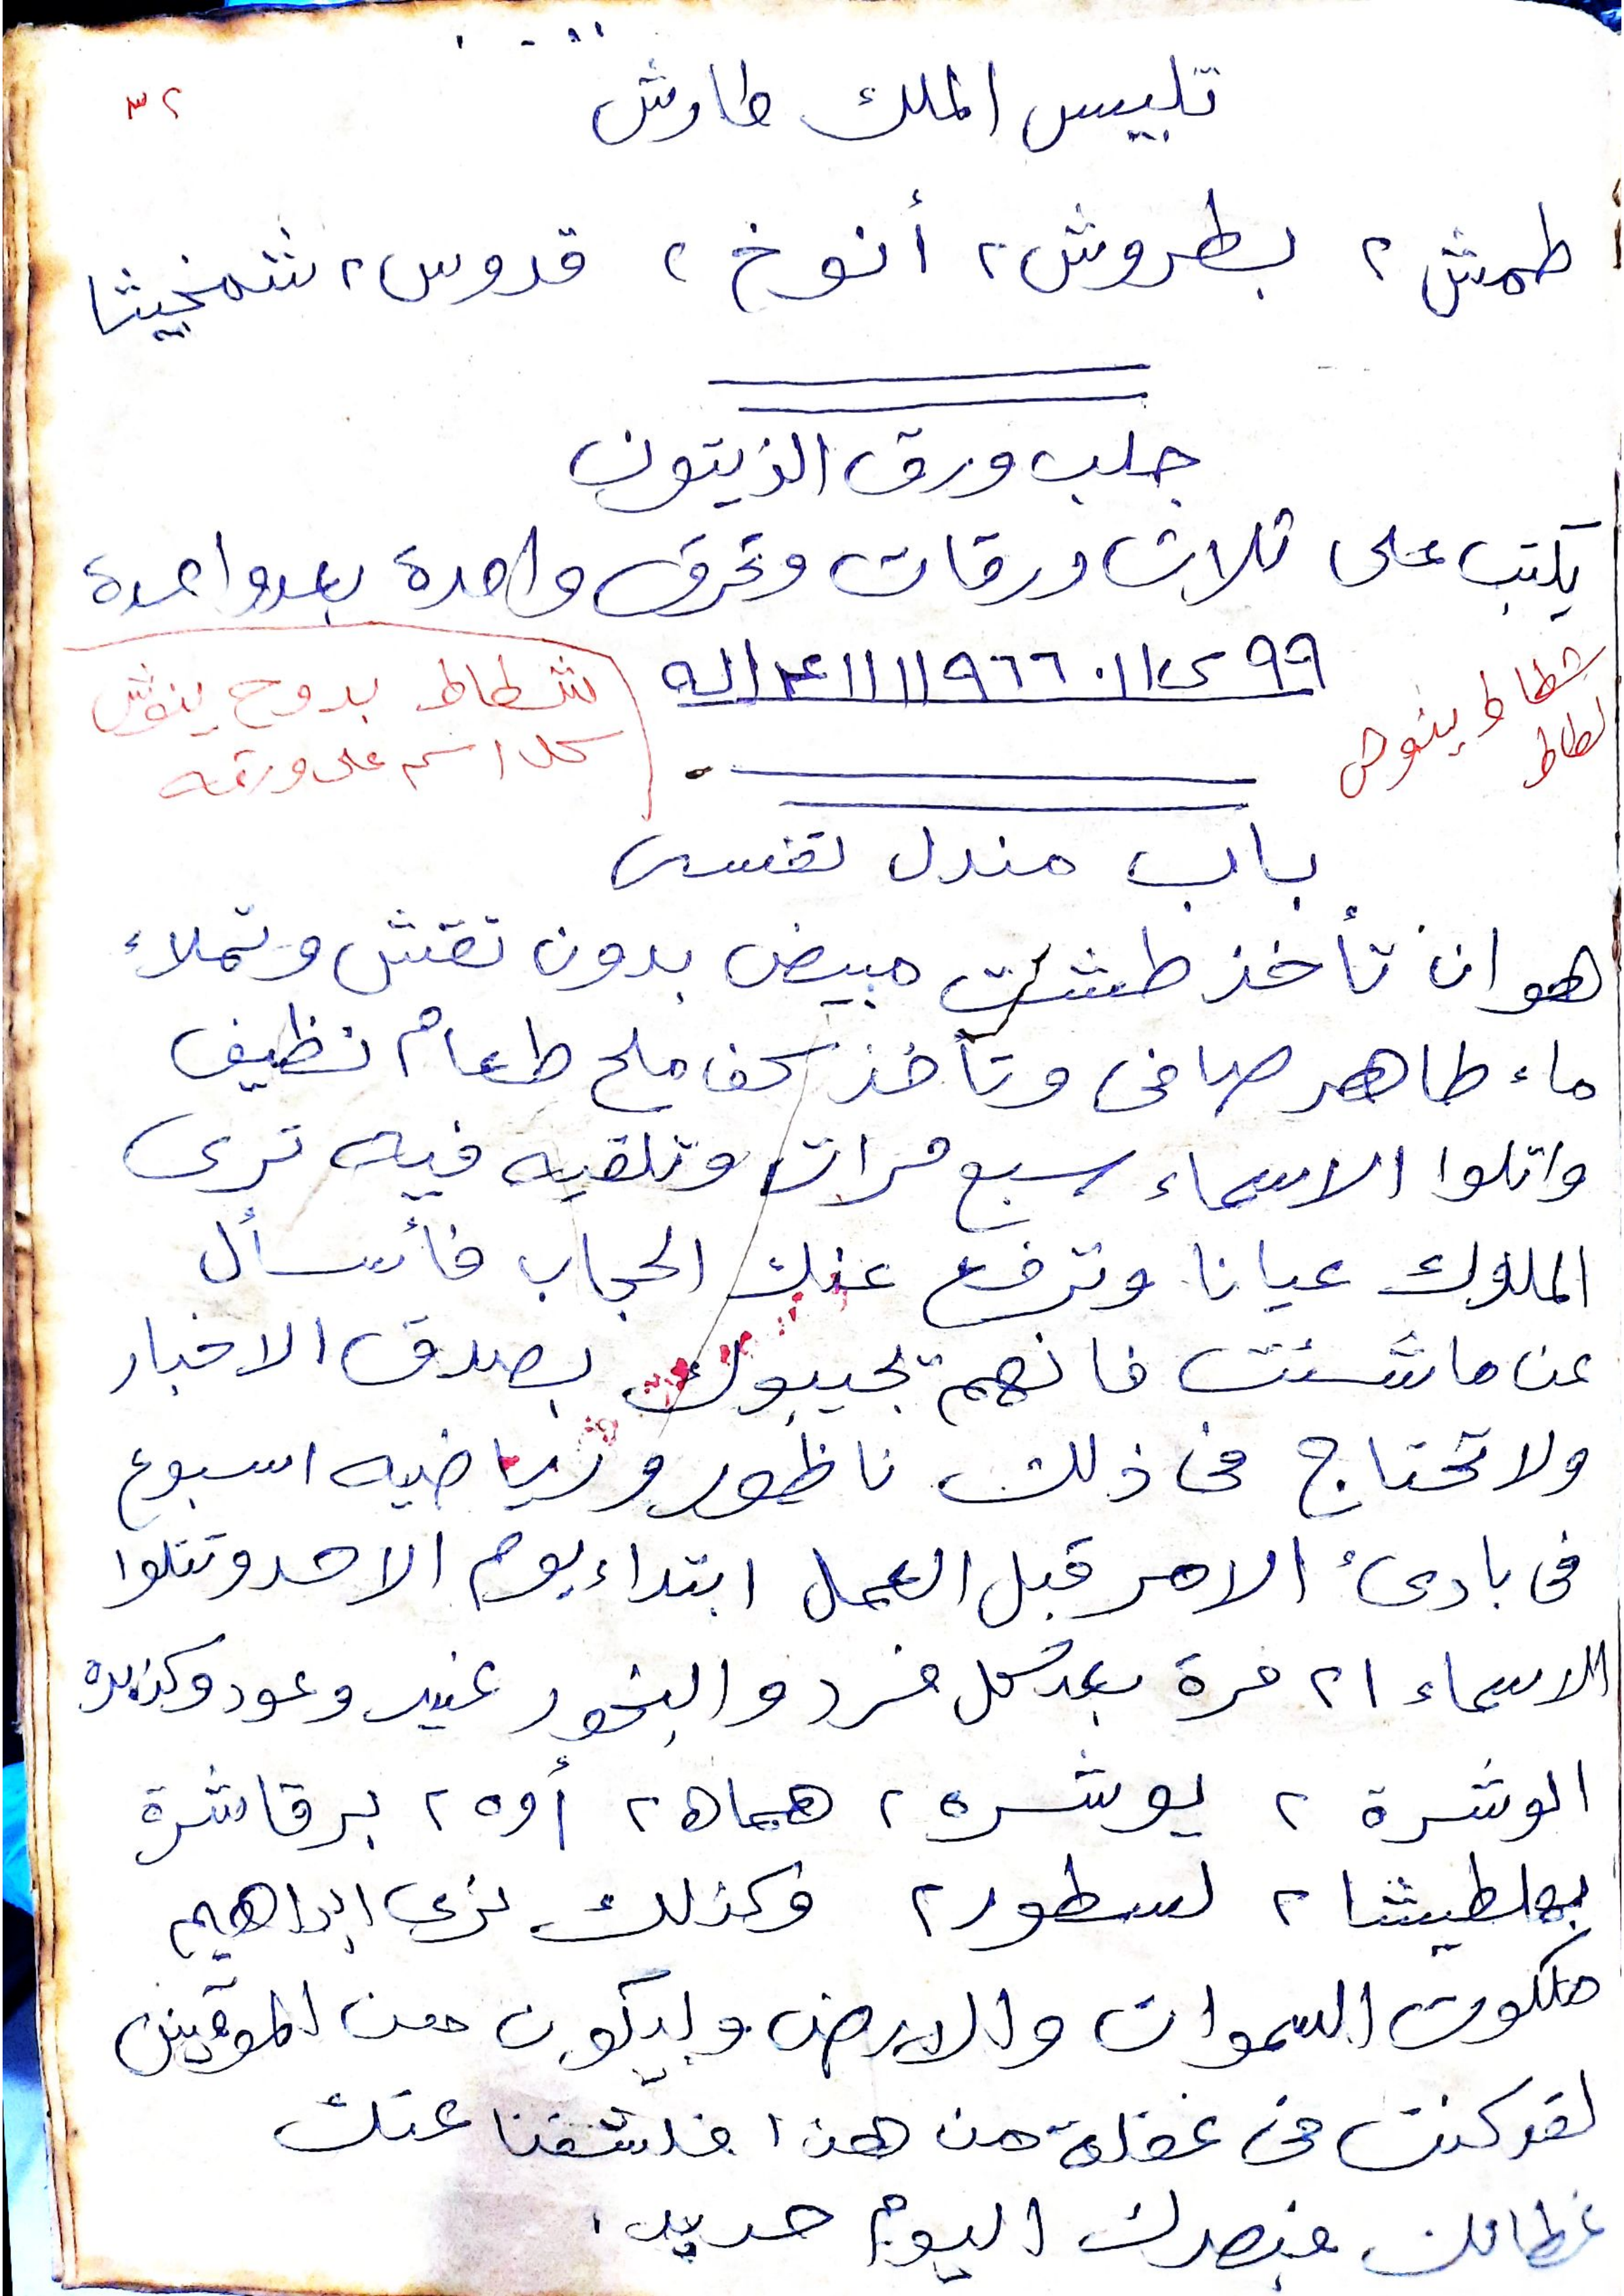 ٣٢
تلبيس الملك طارش
طمش ٢ بطروش ٢ أنوخ ٢ قدوس ٢ شمخيثا
جلب ورق الزيتون
يكتب على ثلاث ورقات وتحرق واحدة بعد واحدة
٩٩
شطاط بدوح ينوش
كل اسم على ورقه
شطاط ينوش
لطاط
باب مندل نفسى
هو ان تأخذ طشت مبيض بدون نقش وتملاء
ماء طاهر صافى وتأخذ كف ملح طعام نظيف
واتلوا الاسماء سبع مرات وتلقيه فيه ترى
الملوك عيانا وترفع عنك الحجاب فأسأل
عن ما شئت فانهم تجيبوك بصدق الاخبار
ولا تحتاج فى ذلك ناظور ورياضيه اسبوع
فى بادىء الامر قبل العمل ابتداء يوم الاحد وتتلوا
الاسماء ٢١ مرة بعد كل فرد والبخور عنبر وعود وكزبره
الوشرة ٢ يوشره ٢ هماه ٢ أوه ٢ برقاشرة
بهلطيشا ٢ لسطور ٢ وكذلك نرى ابراهيم
ملكوت السموات والارض وليكون من الموقنين
لقد كنت فى غفلة من هذا فكشفنا عنك
غطائك فبصرك اليوم حديد.